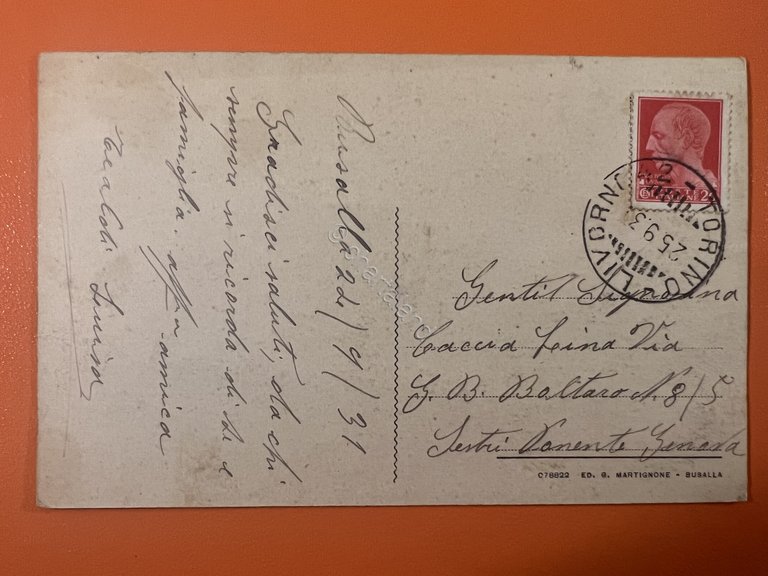 Busalla 24/9/31
Gradisci saluti, da chi
sempre si ricorda di te e
famiglia. aff.ma amica
Luisa
Gentil Signorina
Caccia Lina Via
G. B. Boltaro N. 8/5
Sestri Ponente Genova
C78822 ED. G. MARTIGNONE - BUSALLA
TORINO LIVORNO 2
25.9.3